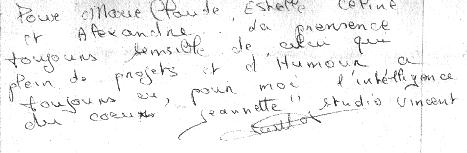 Pour Marie Claude, Estelle Céline
et Alexandre. La prensence
toujours sensible de celui qui
plein de projets et d'Humour a
toujours eu, pour moi l'intelligence
du coeur. Jeannette" studio Vincent